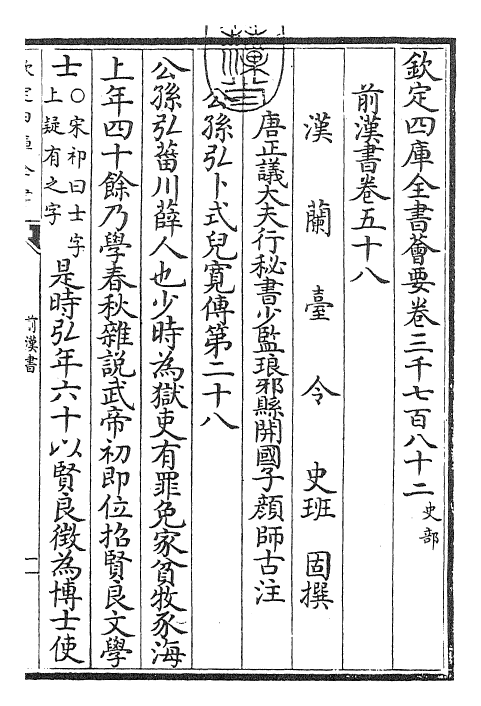 欽定四庫全書薈要卷三千七百八十二史部
前漢書卷五十八
漢蘭臺令史班固撰
唐正議大夫行秘書少監琅邪縣開國子顏師古注
公孫弘卜式兒寛傳第二十八
公孫弘菑川薛人也少時為獄吏有罪免家貧牧豕海
上年四十餘乃學春秋雜說武帝初即位招賢良文學
士○宋祁曰士字上疑有之字是時弘年六十以賢良徵為博士使
前漢書
一